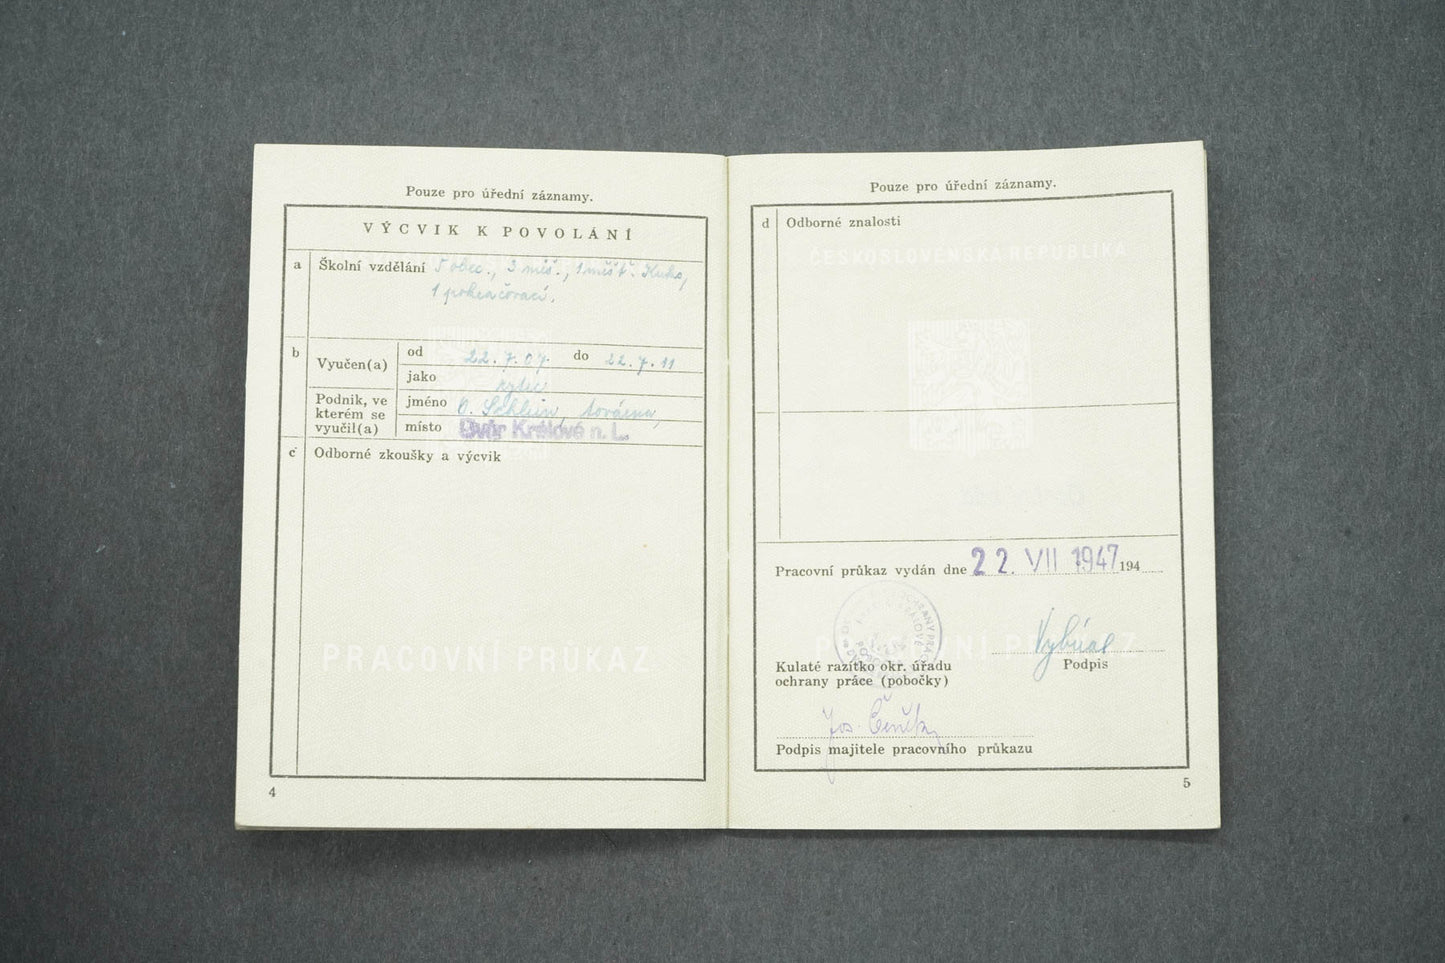 Pouze pro úřední záznamy.
VÝCVIK K POVOLÁNÍ
a Školní vzdělání 5 obec., 3 měš.,
1 pokračovací.
b Vyučen(a) od 22. 7. 07. do 22. 7. 11
jako rytec
Podnik, ve kterém se vyučil(a) jméno továrna,
místo Dvůr Králové n. L.
c Odborné zkoušky a výcvik
PRACOVNÍ PRŮKAZ
4
Pouze pro úřední záznamy.
d Odborné znalosti
ČESKOSLOVENSKÁ REPUBLIKA
Pracovní průkaz vydán dne 22. VII 1947 194
PRACOVNÍ PRŮKAZ
Kulaté razítko okr. úřadu
ochrany práce (pobočky)
Podpis
Jos.
Podpis majitele pracovního průkazu
5